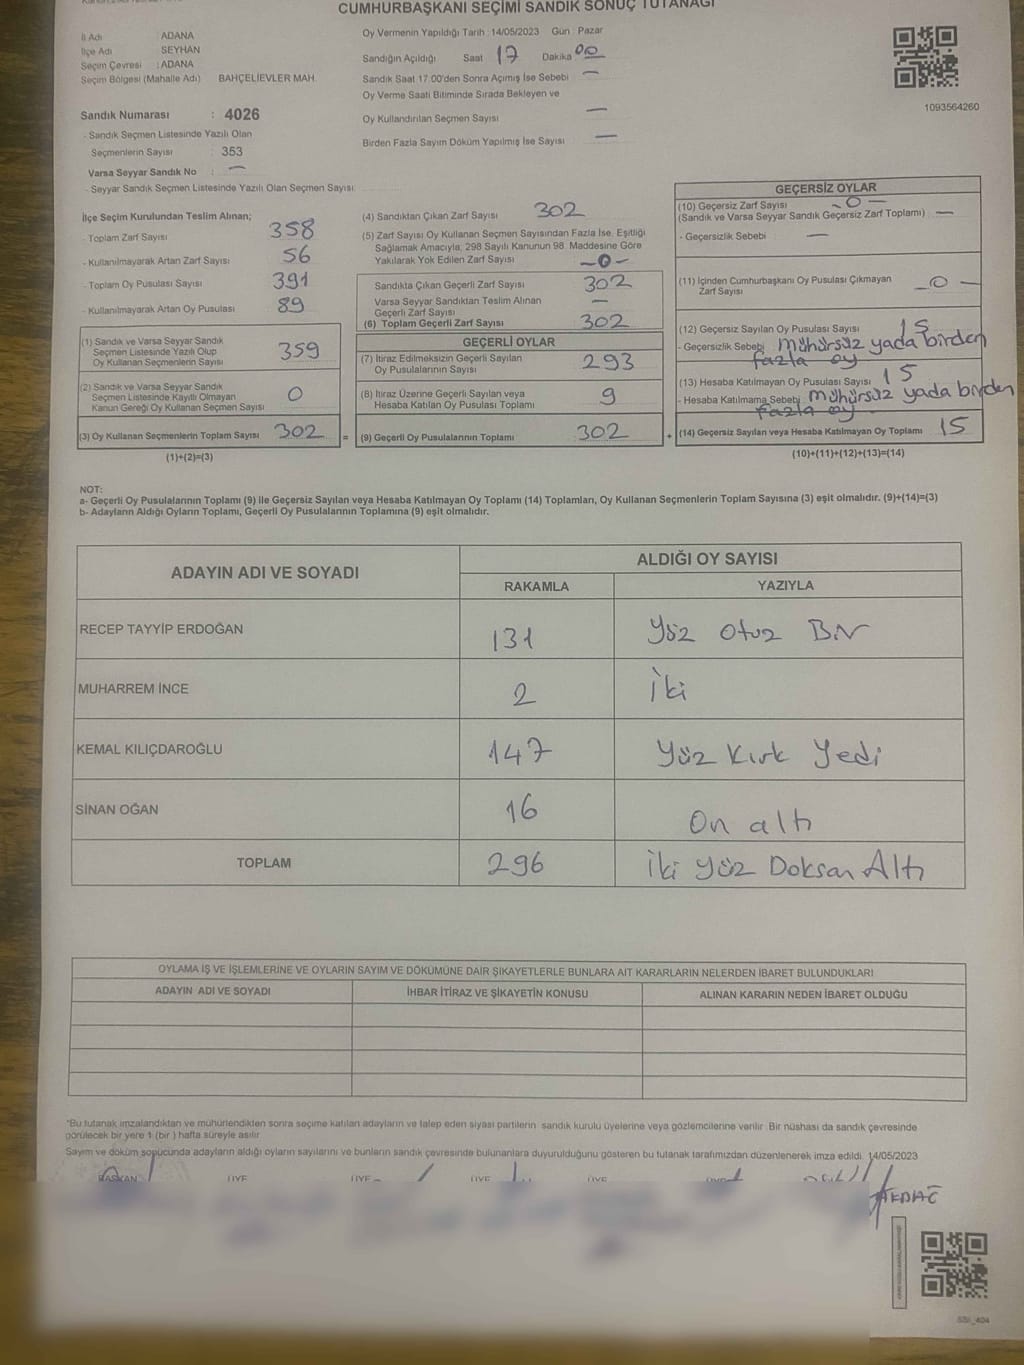 CUMHURBAŞKANI SEÇİMİ SANDIK SONUÇ TUTANAĞI
İl Adı : ADANA
İlçe Adı : SEYHAN
Seçim Çevresi : ADANA
Seçim Bölgesi (Mahalle Adı) BAHÇELİEVLER MAH.
Sandık Numarası : 4026
- Sandık Seçmen Listesinde Yazılı Olan
Seçmenlerin Sayısı : 353
Varsa Seyyar Sandık No : —
- Seyyar Sandık Seçmen Listesinde Yazılı Olan Seçmen Sayısı:
Oy Vermenin Yapıldığı Tarih : 14/05/2023 Gün : Pazar
Sandığın Açıldığı Saat 17 Dakika 00
Sandık Saat 17:00'den Sonra Açımış İse Sebebi —
Oy Verme Saati Bitiminde Sırada Bekleyen ve
Oy Kullandırılan Seçmen Sayısı —
Birden Fazla Sayım Döküm Yapılmış İse Sayısı —
1093564260
İlçe Seçim Kurulundan Teslim Alınan;
- Toplam Zarf Sayısı 358
- Kullanılmayarak Artan Zarf Sayısı 56
- Toplam Oy Pusulası Sayısı 391
- Kullanılmayarak Artan Oy Pusulası 89
(1) Sandık ve Varsa Seyyar Sandık
Seçmen Listesinde Yazılı Olup
Oy Kullanan Seçmenlerin Sayısı 359
(2) Sandık ve Varsa Seyyar Sandık
Seçmen Listesinde Kayıtlı Olmayan
Kanun Gereği Oy Kullanan Seçmen Sayısı 0
(3) Oy Kullanan Seçmenlerin Toplam Sayısı 302 =
(1)+(2)=(3)
(4) Sandıktan Çıkan Zarf Sayısı 302
(5) Zarf Sayısı Oy Kullanan Seçmen Sayısından Fazla İse, Eşitliği
Sağlamak Amacıyla, 298 Sayılı Kanunun 98. Maddesine Göre
Yakılarak Yok Edilen Zarf Sayısı —0—
Sandıkta Çıkan Geçerli Zarf Sayısı 302
Varsa Seyyar Sandıktan Teslim Alınan
Geçerli Zarf Sayısı —
(6) Toplam Geçerli Zarf Sayısı 302
GEÇERLİ OYLAR
(7) İtiraz Edilmeksizin Geçerli Sayılan
Oy Pusulalarının Sayısı 293
(8) İtiraz Üzerine Geçerli Sayılan veya
Hesaba Katılan Oy Pusulası Toplamı 9
(9) Geçerli Oy Pusulalarının Toplamı 302 +
GEÇERSİZ OYLAR
(10) Geçersiz Zarf Sayısı —0—
(Sandık ve Varsa Seyyar Sandık Geçersiz Zarf Toplamı) —
- Geçersizlik Sebebi —
(11) İçinden Cumhurbaşkanı Oy Pusulası Çıkmayan
Zarf Sayısı —0—
(12) Geçersiz Sayılan Oy Pusulası Sayısı 15
- Geçersizlik Sebebi mühürsüz yada birden
fazla oy
(13) Hesaba Katılmayan Oy Pusulası Sayısı 15
- Hesaba Katılmama Sebebi mühürsüz yada birden
fazla oy
(14) Geçersiz Sayılan veya Hesaba Katılmayan Oy Toplamı 15
(10)+(11)+(12)+(13)=(14)
NOT:
a- Geçerli Oy Pusulalarının Toplamı (9) ile Geçersiz Sayılan veya Hesaba Katılmayan Oy Toplamı (14) Toplamları, Oy Kullanan Seçmenlerin Toplam Sayısına (3) eşit olmalıdır. (9)+(14)=(3)
b- Adayların Aldığı Oyların Toplamı, Geçerli Oy Pusulalarının Toplamına (9) eşit olmalıdır.
ADAYIN ADI VE SOYADI
ALDIĞI OY SAYISI
RAKAMLA YAZIYLA
RECEP TAYYİP ERDOĞAN 131 Yüz Otuz Bir
MUHARREM İNCE 2 İki
KEMAL KILIÇDAROĞLU 147 Yüz Kırk Yedi
SİNAN OĞAN 16 On altı
TOPLAM 296 İki Yüz Doksan Altı
OYLAMA İŞ VE İŞLEMLERİNE VE OYLARIN SAYIM VE DÖKÜMÜNE DAİR ŞİKAYETLERLE BUNLARA AİT KARARLARIN NELERDEN İBARET BULUNDUKLARI
ADAYIN ADI VE SOYADI İHBAR İTİRAZ VE ŞİKAYETİN KONUSU ALINAN KARARIN NEDEN İBARET OLDUĞU
"Bu tutanak imzalandıktan ve mühürlendikten sonra seçime katılan adayların ve talep eden siyasi partilerin sandık kurulu üyelerine veya gözlemcilerine verilir. Bir nüshası da sandık çevresinde
görülecek bir yere 1 (bir ) hafta süreyle asılır.
Sayım ve döküm sonucunda adayların aldığı oyların sayılarını ve bunların sandık çevresinde bulunanlara duyurulduğunu gösteren bu tutanak tarafımızdan düzenlenerek imza edildi. 14/05/2023
BAŞKAN ÜYE ÜYE ÜYE ÜYE